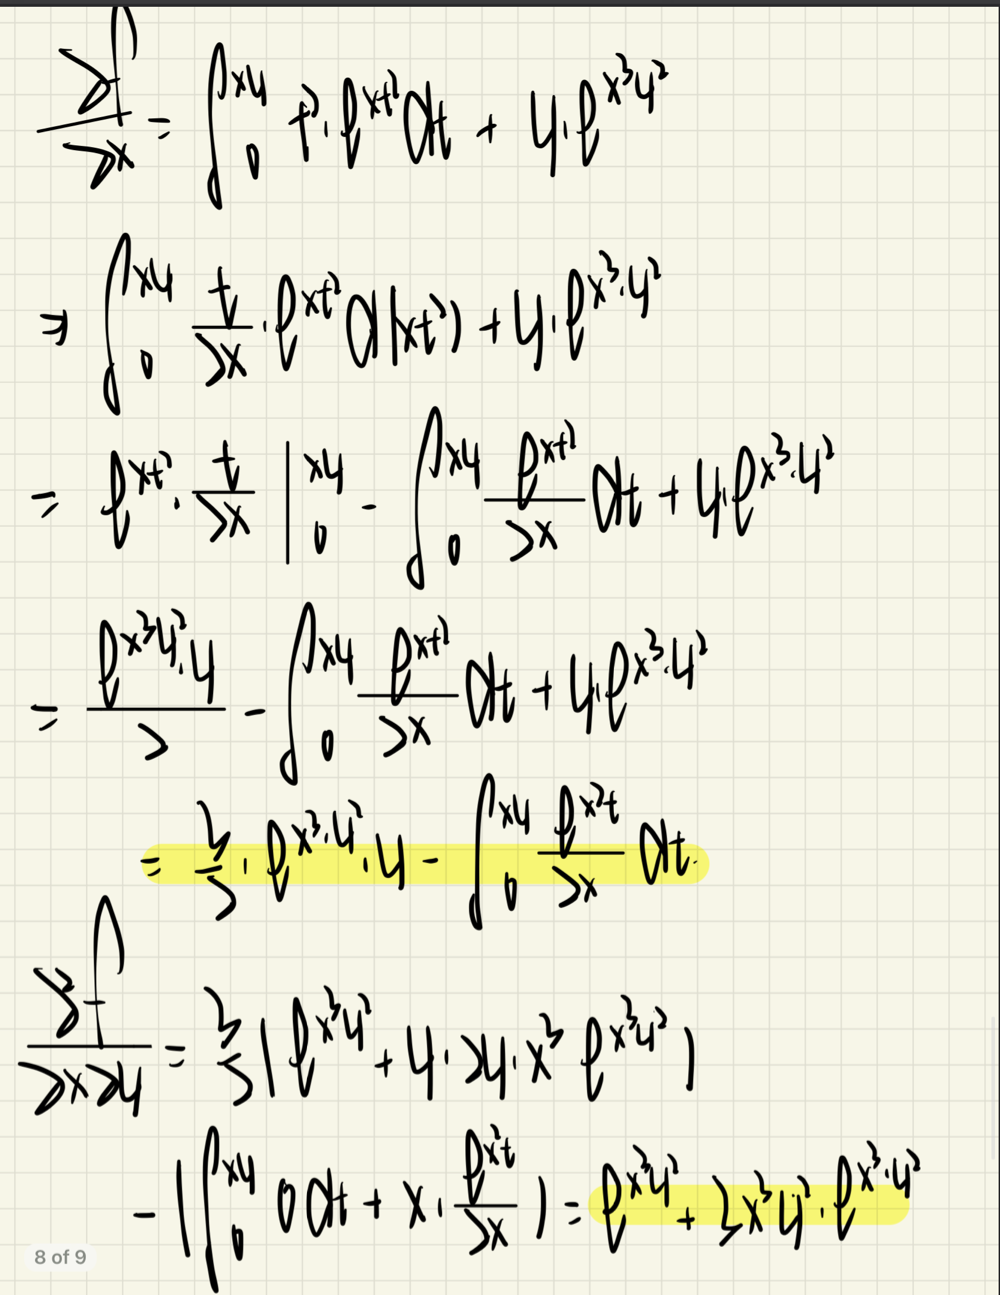 ∂f/∂x = ∫₀^{xy} t²·e^{xt²}dt + y·e^{x³y²}
⇒ ∫₀^{xy} t/2x · e^{xt²} d(xt²) + y·e^{x³·y²}
= e^{xt²} · t/2x |₀^{xy} - ∫₀^{xy} e^{xt²}/2x dt + y·e^{x³·y²}
= e^{x³y²}·y/2 - ∫₀^{xy} e^{xt²}/2x dt + y·e^{x³·y²}
= 3/2 · e^{x³·y²}·y - ∫₀^{xy} e^{x²t}/2x dt.
∂²f/∂x∂y = 3/2 (e^{x³y²} + y·2y·x³ e^{x³y²})
- (∫₀^{xy} 0dt + x· e^{x²t}/2x) = e^{x³y²} + 3x³y²·e^{x³·y²}
8 of 9